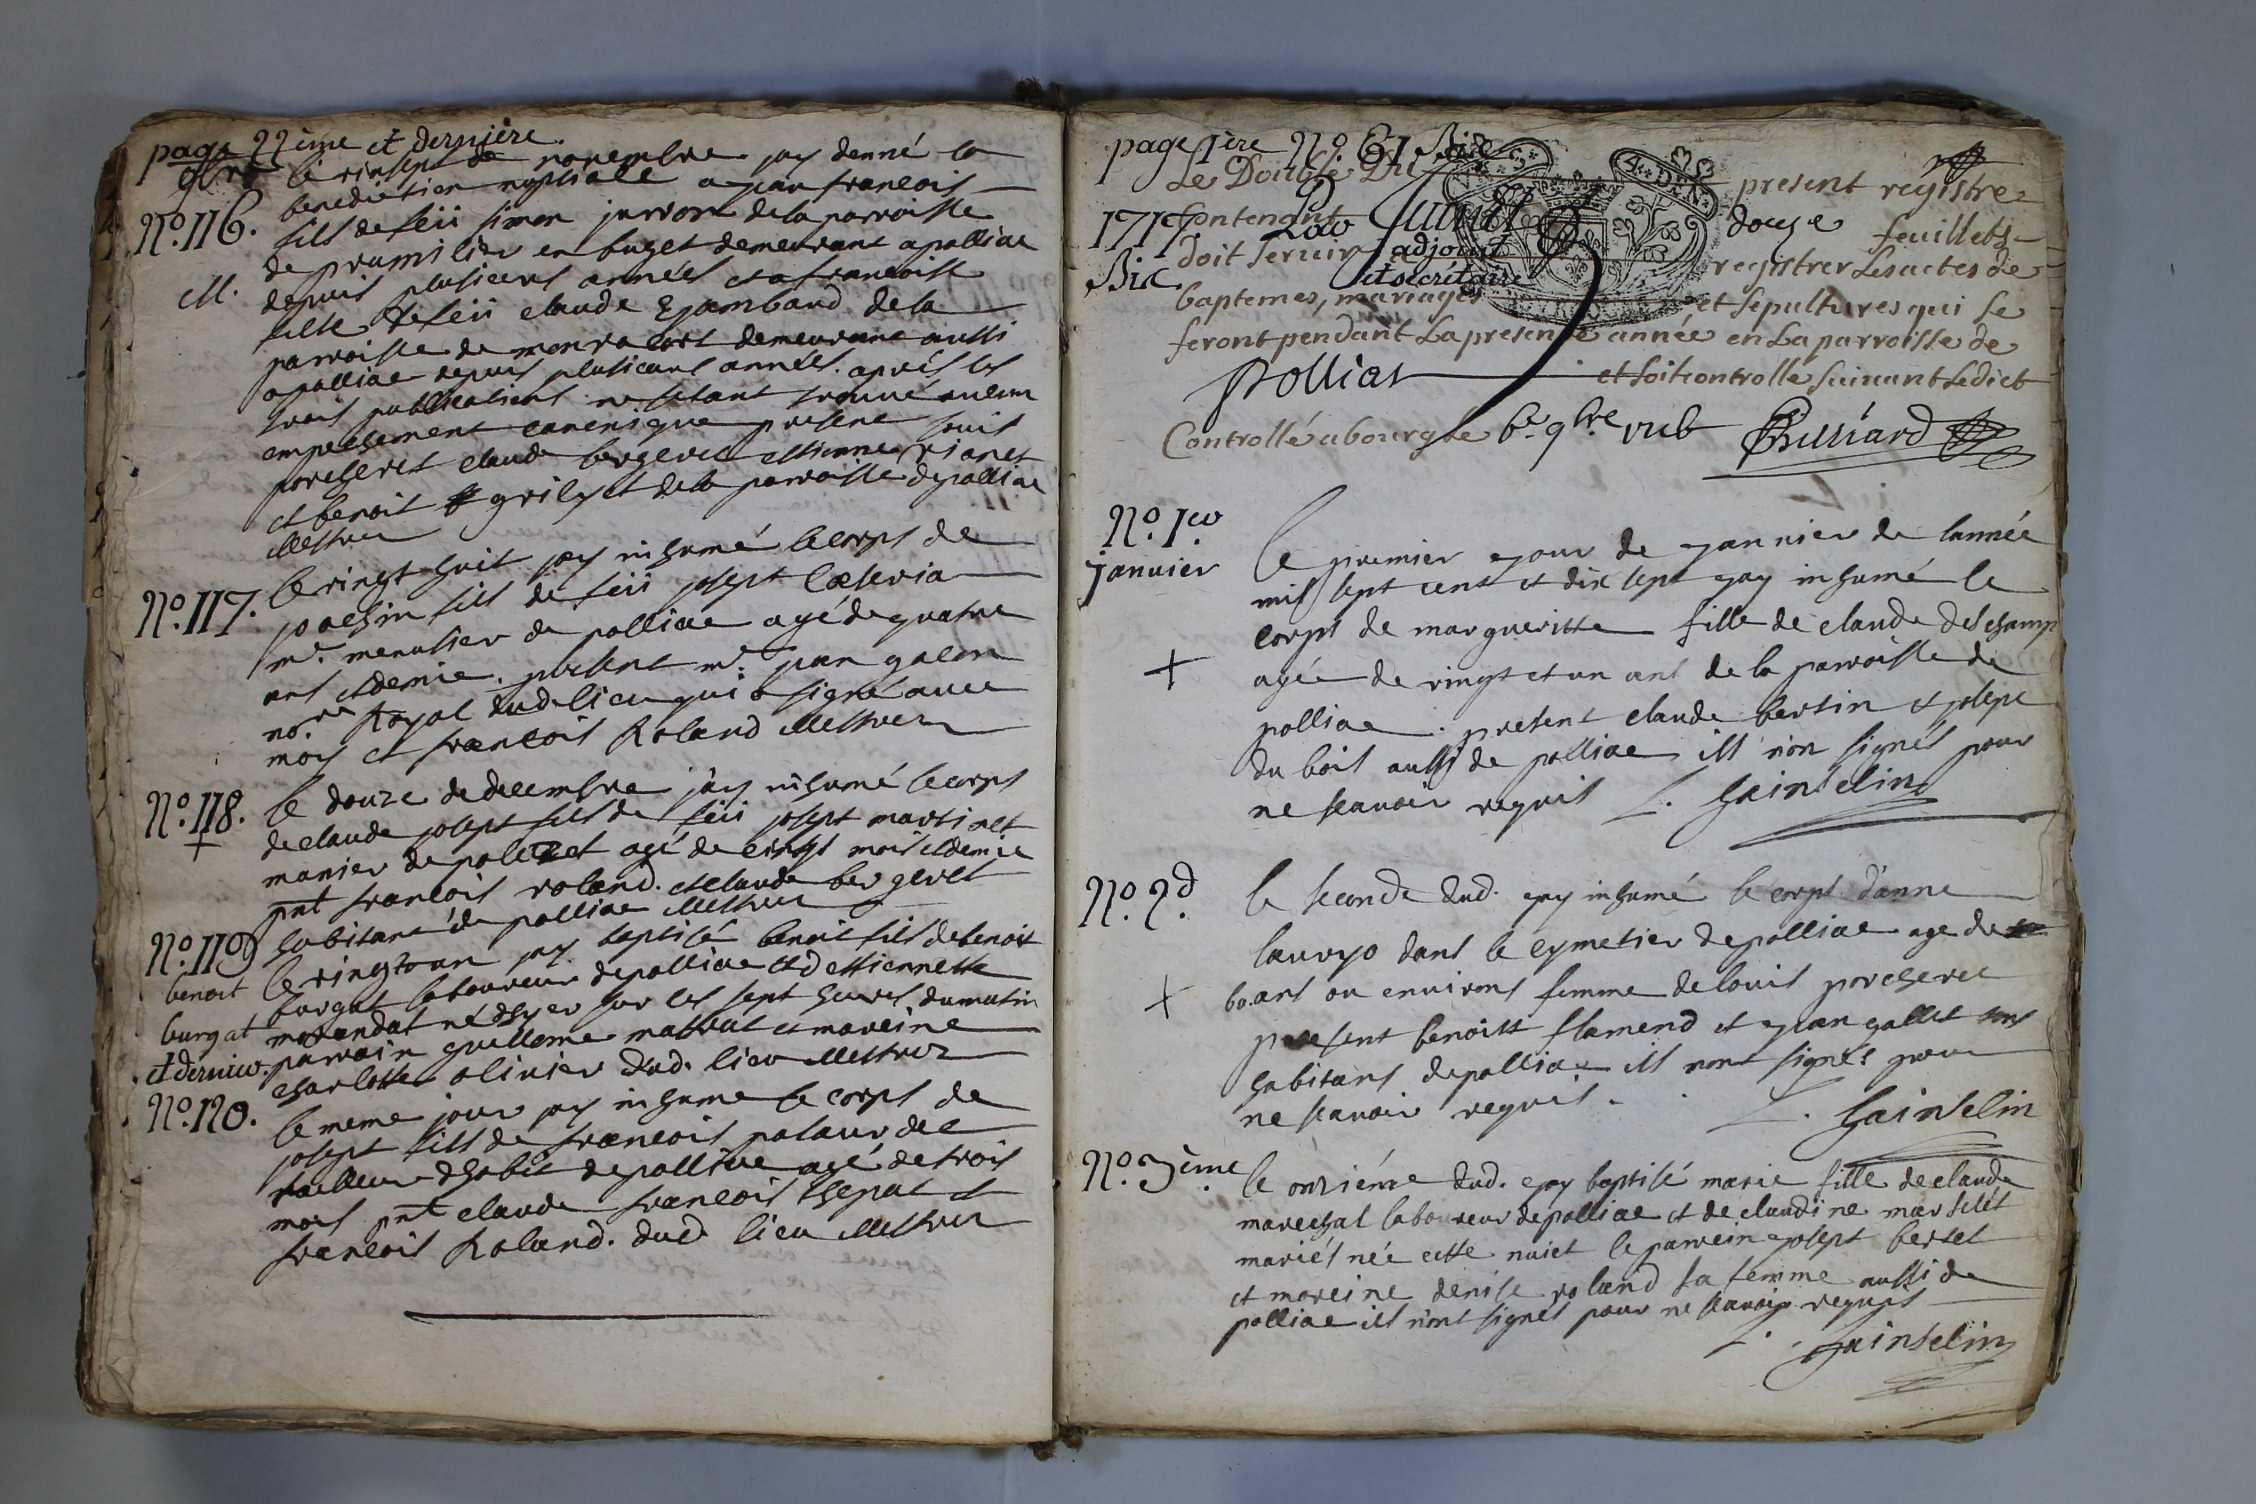 page 22ème et dernière.
9bre le vinsept de novembre jay donné la
benediction nuptiale a jean francois
N.o 116. fils de feü simon jurron de la parroisse
de prumilieu en buget demeurant a polliac
M. depuis plusieurs années et a francoise
fille de feü claude Gambaud de la
parroisse de demeurant aussi
a polliac depuis plusieurs années. aprés les
trois publications ne sétant trouvé aucun
empechement canonique present louis
porcheret claude bergeret estienne
et benoit grilyet de la parroisse de polliac
Mestrer
N.o 117. le vingt huit jay inhumé le corps de
joachin fils de feü josept
m.e menusier de polliac agé de quatre
ans et demie. present m.e jean galion
no.re Royal dud. lieu qui a signé avec
moy et francois Roland Mestrer
N.o 118. le douze de decembre jay inhumé le corps
de claude josept fils de feü josept martinet
manier de polliac agé de cinqt mois et demie
pnt francois roland. et claude bergeret
habitant de polliac Mestrer
N.o 119 le vingtoun jay baptisé benoit fils de benoit
benoit burgat laboureur de polliac et d estiennette
burgat morandat né dhyer sur les sept heures du matin
et dernier. parrain guilleme et mareine
charlotte olinier dud. lieu Mestrer
N.o 120. le meme jour jay inhume le corps de
josept fils de francois palaurdee
tailleur dhabit de polliac agé de trois
mois pnt claude francois thepat et
francois Roland. dud. lieu Mestrer
page 1ère N.o 61 Bis
Le Double Du present registre
1717 Contenant douze feuillets
Bis. doit servir adjoint registrer les actes de
et secrétaire
baptemes, mariages et sepultures qui se
feront pendant La presente année en La parroisse de
Polliat et soit controlle suivant Ledict
Controllé a bourg le 6.e 9bre 1716
N.o 1.er
janvier le premier jour de janvier de lannée
mil sept cent et dix sept jay inhumé le
corps de margueritte fille de claude deschamp
agée de vingt et un ans de la parroisse de
polliac. present claude bertin et josept
du bois aussi de polliac ils non signés pour
ne scavoir requis L. Gainselin
N.o 2.d le seconde dud. jay inhumé le corps d'anne
lauryo dans le cymetier de polliac age de
60 ans ou environs femme de louis porcheret
present benoist flamend et jean gallet tous
habitans de polliac ils nont signés pour
ne scavoir requis. L. Gainselin
N.o 3ème le onziéme dud. jay baptisé marie fille de claude
marechal laboureur de polliac et de claudine marselét
mariés née cette nuict le parrein josept bertet
et mareine denise roland sa femme aussi de
polliac ils nont signés pour ne scavoir requis
L. Gainselin